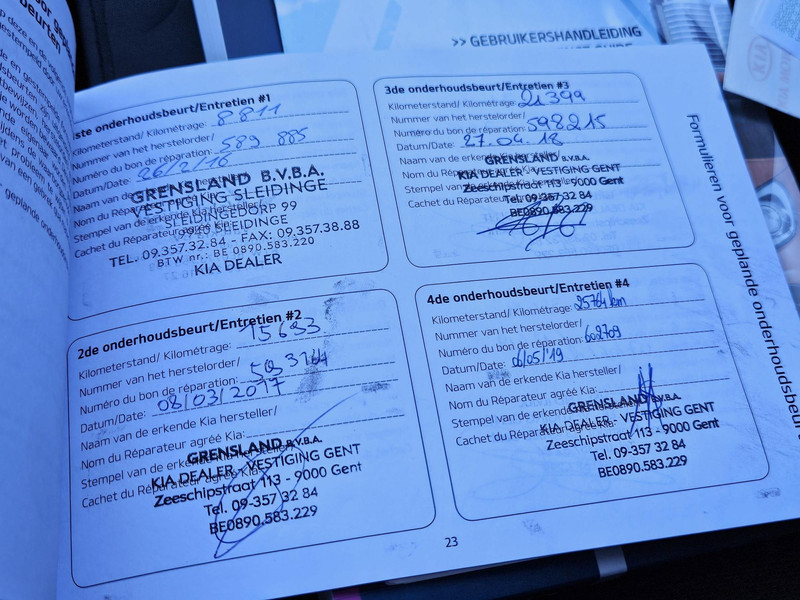 >> GEBRUIKERSHANDLEIDING
KIA
1ste onderhoudsbeurt/Entretien #1
Kilometerstand/ Kilométrage: 8811
Nummer van het herstelorder/
Numéro du bon de réparation: 589 885
Datum/Date: 26/2/16
GRENSLAND B.V.B.A.
VESTIGING SLEIDINGE
SLEIDINGEDORP 99
SLEIDINGE
TEL. 09.357.32.84 - FAX: 09.357.38.88
BTW nr.: BE 0890.583.220
KIA DEALER
2de onderhoudsbeurt/Entretien #2
Kilometerstand/ Kilométrage: 15633
Nummer van het herstelorder/
Numéro du bon de réparation:
Datum/Date: 08/03/2017
Naam van de erkende Kia hersteller/
Nom du Réparateur agréé Kia:
Stempel van de erkende Kia hersteller/
Cachet du Réparateur agréé Kia:
GRENSLAND B.V.B.A.
KIA DEALER - VESTIGING GENT
Zeeschipstraat 113 - 9000 Gent
Tel. 09-357 32 84
BE0890.583.229
3de onderhoudsbeurt/Entretien #3
Kilometerstand/ Kilométrage: 21399
Nummer van het herstelorder/
Numéro du bon de réparation: 598215
Datum/Date: 27.04.18
Naam van de erkende
Nom du
Stempel van
Cachet du Réparateur
GRENSLAND B.V.B.A.
KIA DEALER - VESTIGING GENT
Zeeschipstraat 113 - 9000 Gent
Tel. 09-357 32 84
BE0890.583.229
4de onderhoudsbeurt/Entretien #4
Kilometerstand/ Kilométrage: 25764 km
Nummer van het herstelorder/
Numéro du bon de réparation: 602709
Datum/Date: 06/05/'19
Naam van de erkende Kia hersteller/
Nom du Réparateur agréé Kia:
Stempel van de erkende Kia
Cachet du Réparateur agréé Kia:
GRENSLAND B.V.B.A.
KIA DEALER - VESTIGING GENT
Zeeschipstraat 113 - 9000 Gent
Tel. 09-357 32 84
BE0890.583.229
23
Formulieren voor geplande onderhoudsbeurten